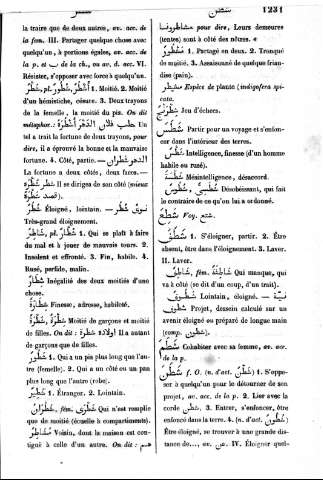 شطن
شطن
1231
la traire que de deux autres, av. acc. de
la fem. III. Partager quelque chose avec
quelqu'un, à portions égales, av. acc. de
la p. et ب de la ch., ou av. d. acc. VI.
Résister, s'opposer avec force à quelqu'un.
شَطْرٌ, pl. شُطُورٌ, أَشْطُرٌ 1. Moitié. 2. Moitié
d'un hémistiche, césure. 3. Deux trayons
de la femelle, la moitié du pis. On dit
métaphor.: حلب فلان الدهر أشطره Un
tel a trait la fortune de deux trayons, pour
dire, il a éprouvé la bonne et la mauvaise
fortune. 4. Côté, partie.— الدهر شطران
La fortune a deux côtés, deux faces.—
شطره Il se dirigea de son côté (mieux
قصد شطره).
شُطُرٌ Éloigné, lointain. — نوى شطر
Très-grand éloignement.
شَاطِرٌ, pl. شُطَّارٌ 1. Qui se plaît à faire
du mal et à jouer de mauvais tours. 2.
Insolent et effronté. 3. Fin, habile. 4.
Rusé, perfide, malin.
شِطَارٌ Inégalité des deux moitiés d'une
chose.
شَطَارَةٌ Finesse, adresse, habileté.
شِطْرَةٌ Moitié de garçons et moitié
de filles. On dit: أولاده شطرة Il a autant
de garçons que de filles.
شَطُورٌ 1. Qui a un pis plus long que l'au-
tre (femelle). 2. Qui a un côté ou un pan
plus long que l'autre (robe).
شَطِيرٌ 1. Étranger. 2. Lointain.
شَطْرَانُ, fém. شَطْرَى Qui n'est remplie
que de moitié (écuelle à compartiments).
مُشَاطِرٌ Voisin, dont la maison est con-
tiguë à celle d'un autre. On dit: هم
مشاطرونا pour dire, Leurs demeures
(tentes) sont à côté des nôtres.
مَشْطُورٌ 1. Partagé en deux. 2. Tronqué
de moitié. 3. Assaisonné de quelque frian-
dise (pain).
Espèce de plante (indigofera spi-
cata.
شطرنج Jeu d'échecs.
شَطَسَ Partir pour un voyage et s'enfon-
cer dans l'intérieur des terres.
شَطْسٌ Intelligence, finesse (d'un homme
habile ou rusé).
Mésintelligence, désaccord.
شَطُوسٌ, شُطَسِيٌّ Désobéissant, qui fait
le contraire de ce qu'on lui a ordonné.
شَطِعَ Voy. شتع.
شَطَفَ 1. S'éloigner, partir. 2. Être
absent, être dans l'éloignement. 3. Laver.
II. Laver.
شَاطِفٌ, fém. شَاطِفَةٌ Qui manque, qui
va à côté (se dit d'un coup, d'un trait).
شَطُوفٌ Lointain, éloigné. — نية
شطوف Projet, dessein calculé sur un
avenir éloigné ou préparé de longue main
(comp. شطون).
شَطَمَ Cohabiter avec sa femme, av. acc.
de la p.
شَطَنَ f. O. (n. d'act. شَطْنٌ) 1. S'oppo-
ser à quelqu'un pour le détourner de son
projet, av. acc. de la p. 2. Lier avec la
corde شطن. 3. Entrer, s'enfoncer, être
enfoncé dans la terre. 4. (n. d'act. شُطُونٌ)
Être éloigné, se trouver à une grande dis-
tance de..., av. عن. IV. Éloigner quel-